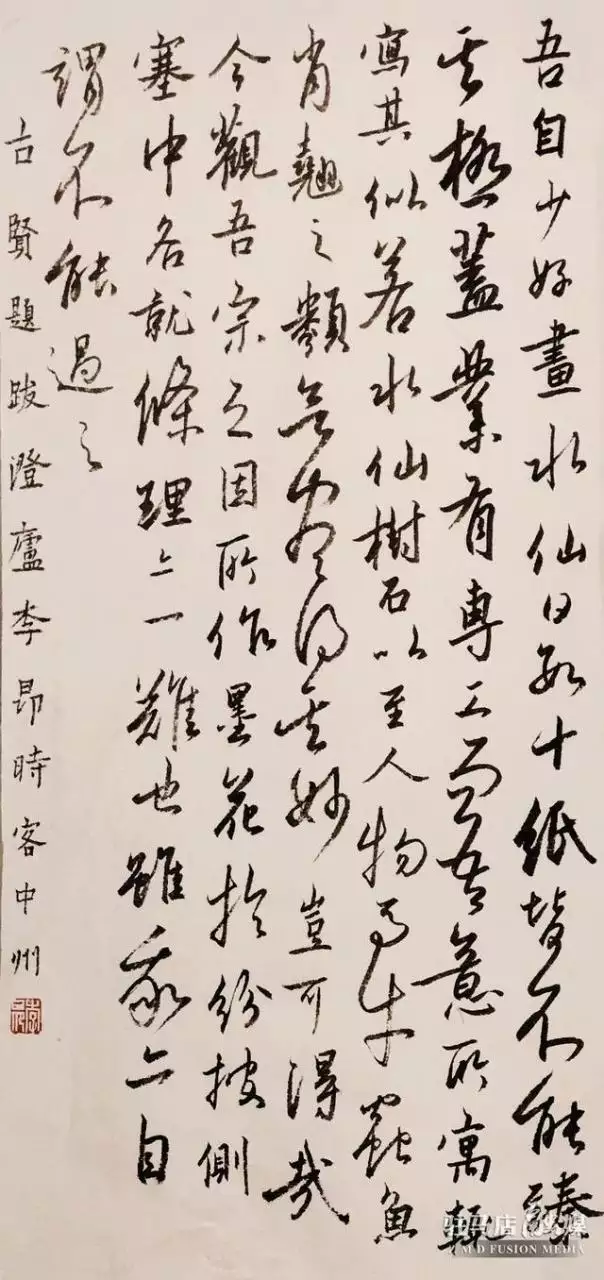 吾自少好畫水仙日數十紙皆不能臻
其極蓋業有專工而吾意所寓輒
寫其似若水仙樹石以至人物馬牛蟲魚
肖翹之類欲盡得其妙豈可得哉
今觀吾宗之因所作墨花於紛披側
塞中各就條理亦一難也雖我亦自
謂不能過之
古賢題跋澄廬李昂時客中州
驻马店融媒
ZMD FUSION MEDIA